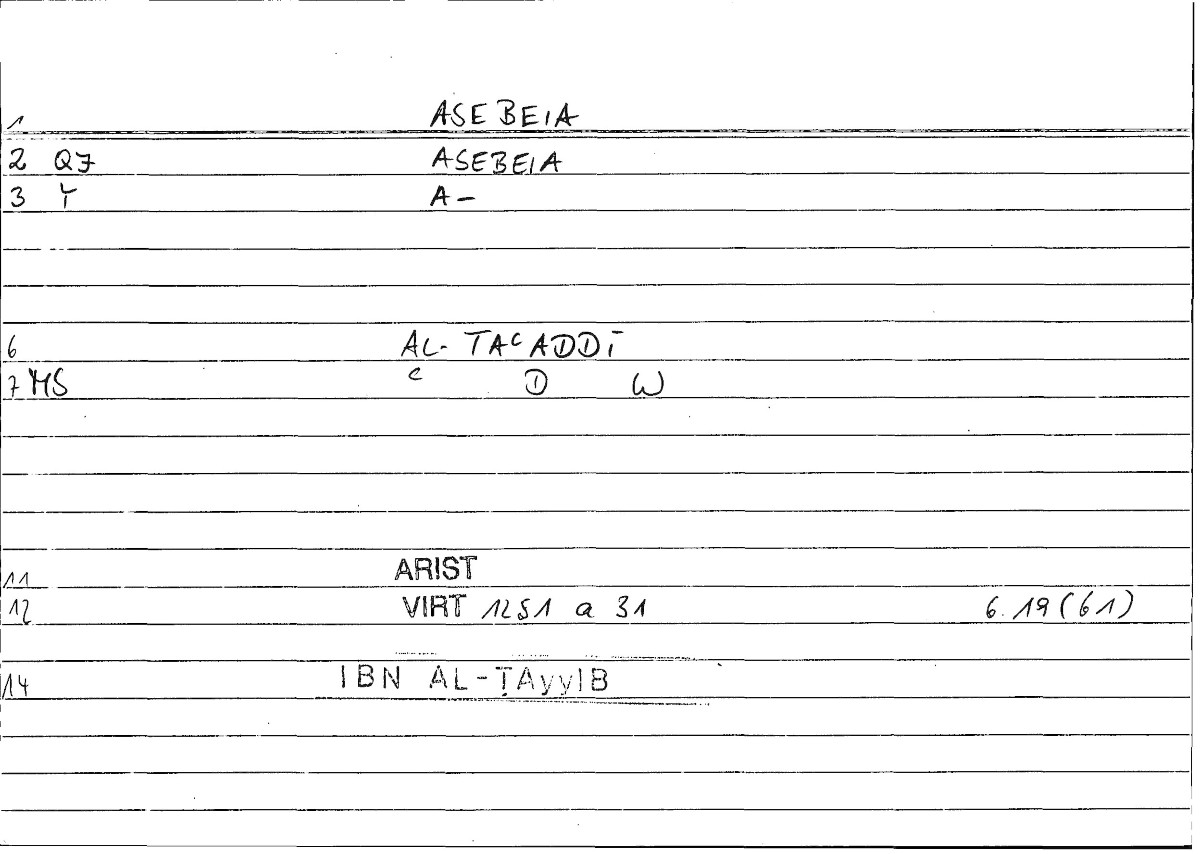 1 ASEBEIA
2 QJ ASEBEIA
3 Y A-
6 AL-TAᶜADDĪ
7 MS ᶜ D W
11 ARIST
12 VIRT 1251 a 31 6.19(61)
14 IBN AL-ṬAyyIB